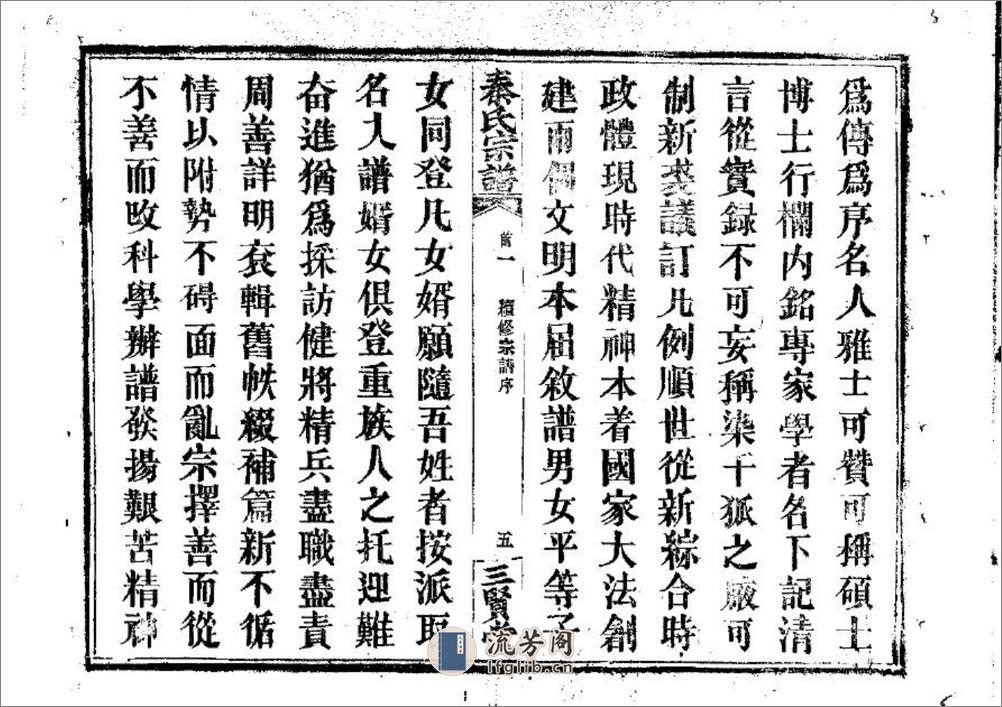 爲傳爲序名人雅士可贊可稱碩士
博士行欄内銘專家學者名下記清
言從實録不可妄稱染千狐之廠可
制新裘議訂凡例順世從新綜合時
政體現時代精神本着國家大法創
建兩個文明本届敘譜男女平等子
秦氏宗譜
首一
續修宗譜序
五
三賢堂
女同登凡女婿願隨吾姓者按派取
名入譜婿女俱登重族人之托迎難
奋進猶爲採訪健將精兵盡職盡責
周善詳明裒輯舊帙綴補篇新不循
情以附勢不碍面而亂宗擇善而從
不善而改科學辦譜發揚艱苦精神
流芳阁
lfglib.cn